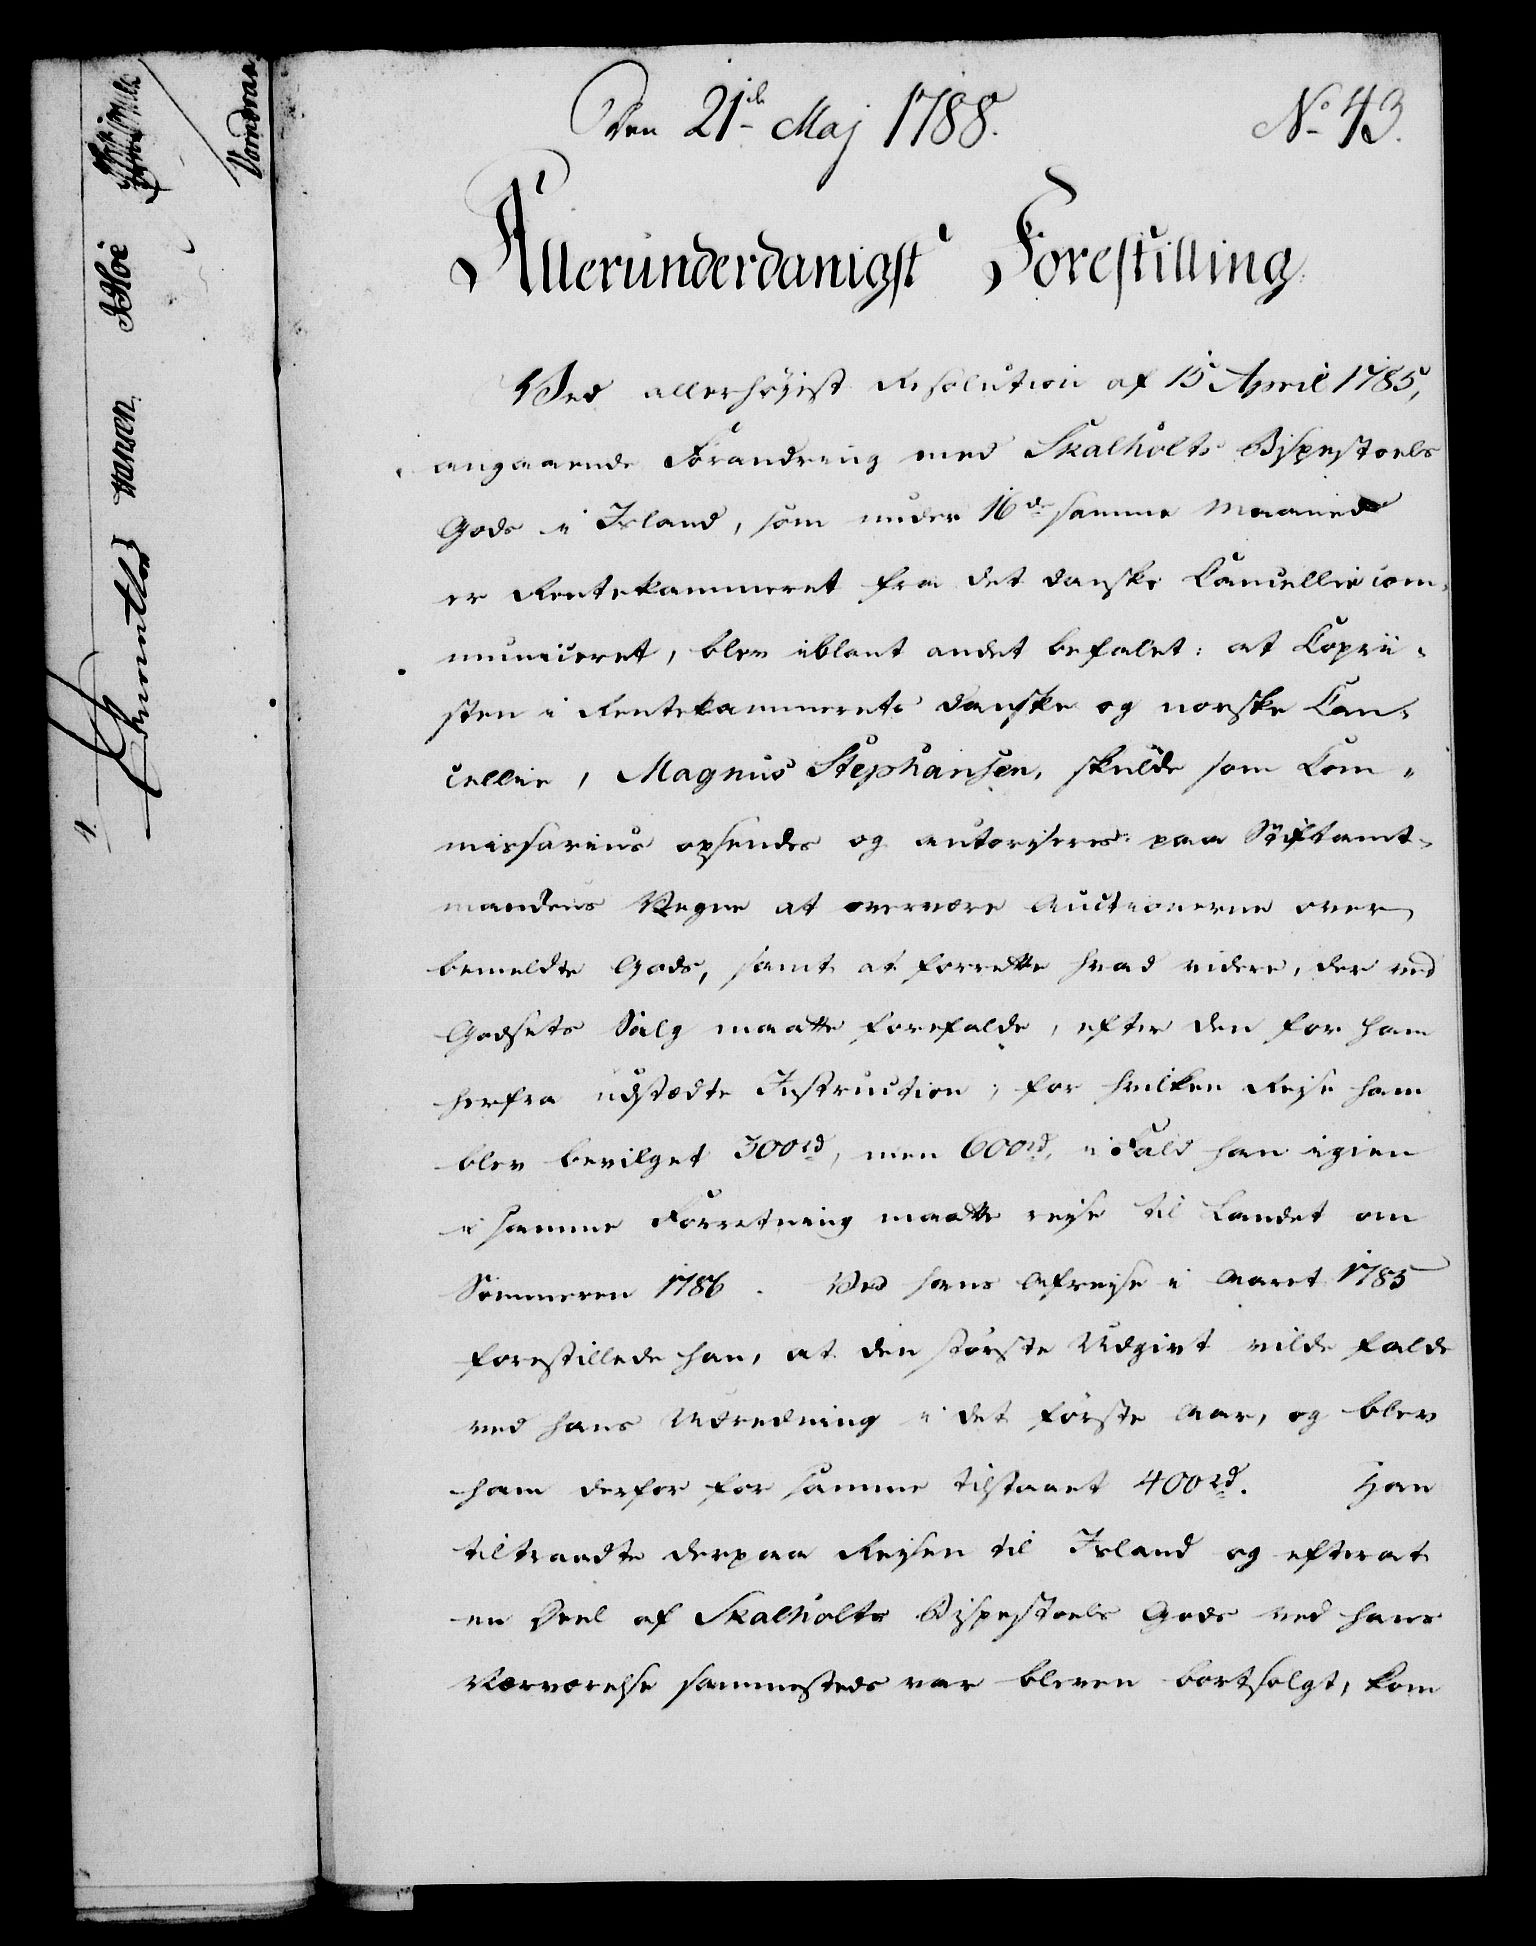 Den 21de Maj 1788.
No 43.
Allerunderdanigst Forestilling.
Ved allerhøjist Resolution af 15 April 1785,
angaaende Forandring med Skalholts Bispestoels
Gods i Island, som under 16de samme Maaned
er Rentekammeret fra det danske Cancellie com-
municeret, blev iblant andet befalet: at Copii-
sten i Rentekammerets danske og norske Can-
cellie, Magnus Stephansen, skulde som Com-
missarius opsendes og autoriseres paa Stiftamt-
mandens Vegne at overvære Auctionerne over
bemeldte Gods, samt at forrette hvad videre, der ved
Godsets Salg maatte forefalde, efter den for ham
herfra udstædte Instruction; for hvilken Rejse ham
blev bevilget 300rd, men 600rd, i Fald han igien
i samme Forretning maatte rejse til Landet om
Sommeren 1786. Ved hans Afrejse i Aaret 1785
forestillede han, at den største Udgivt vilde falde
ved hans Udredning i det første Aar, og blev
ham derfor for samme tilstaaet 400rd. Han
tiltraadte derpaa Rejsen til Island og efterat
en Deel af Skalholts Bispestoels Gods ved hans
Nærværelse sammesteds var bleven bortsolgt, kom
Hansen
JHoë
Vormdran
4.